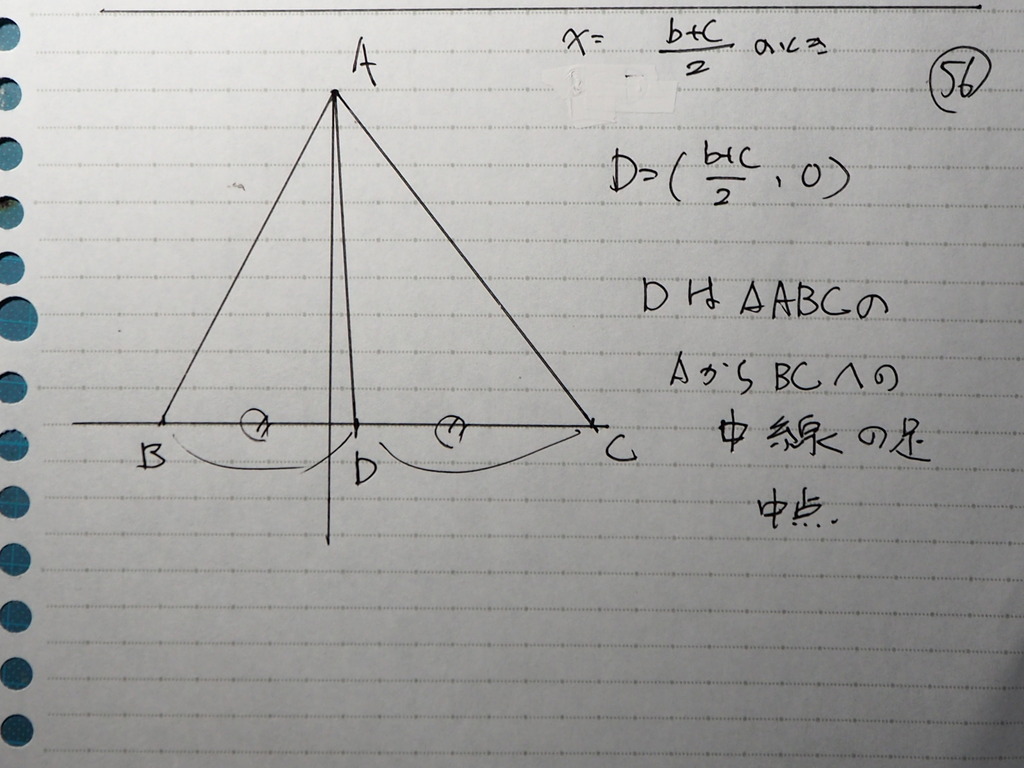 x= (b+c)/2 のとき
56
D=((b+c)/2, 0)
A
DはΔABCの
AからBCへの
中線の足
中点.
B
D
C